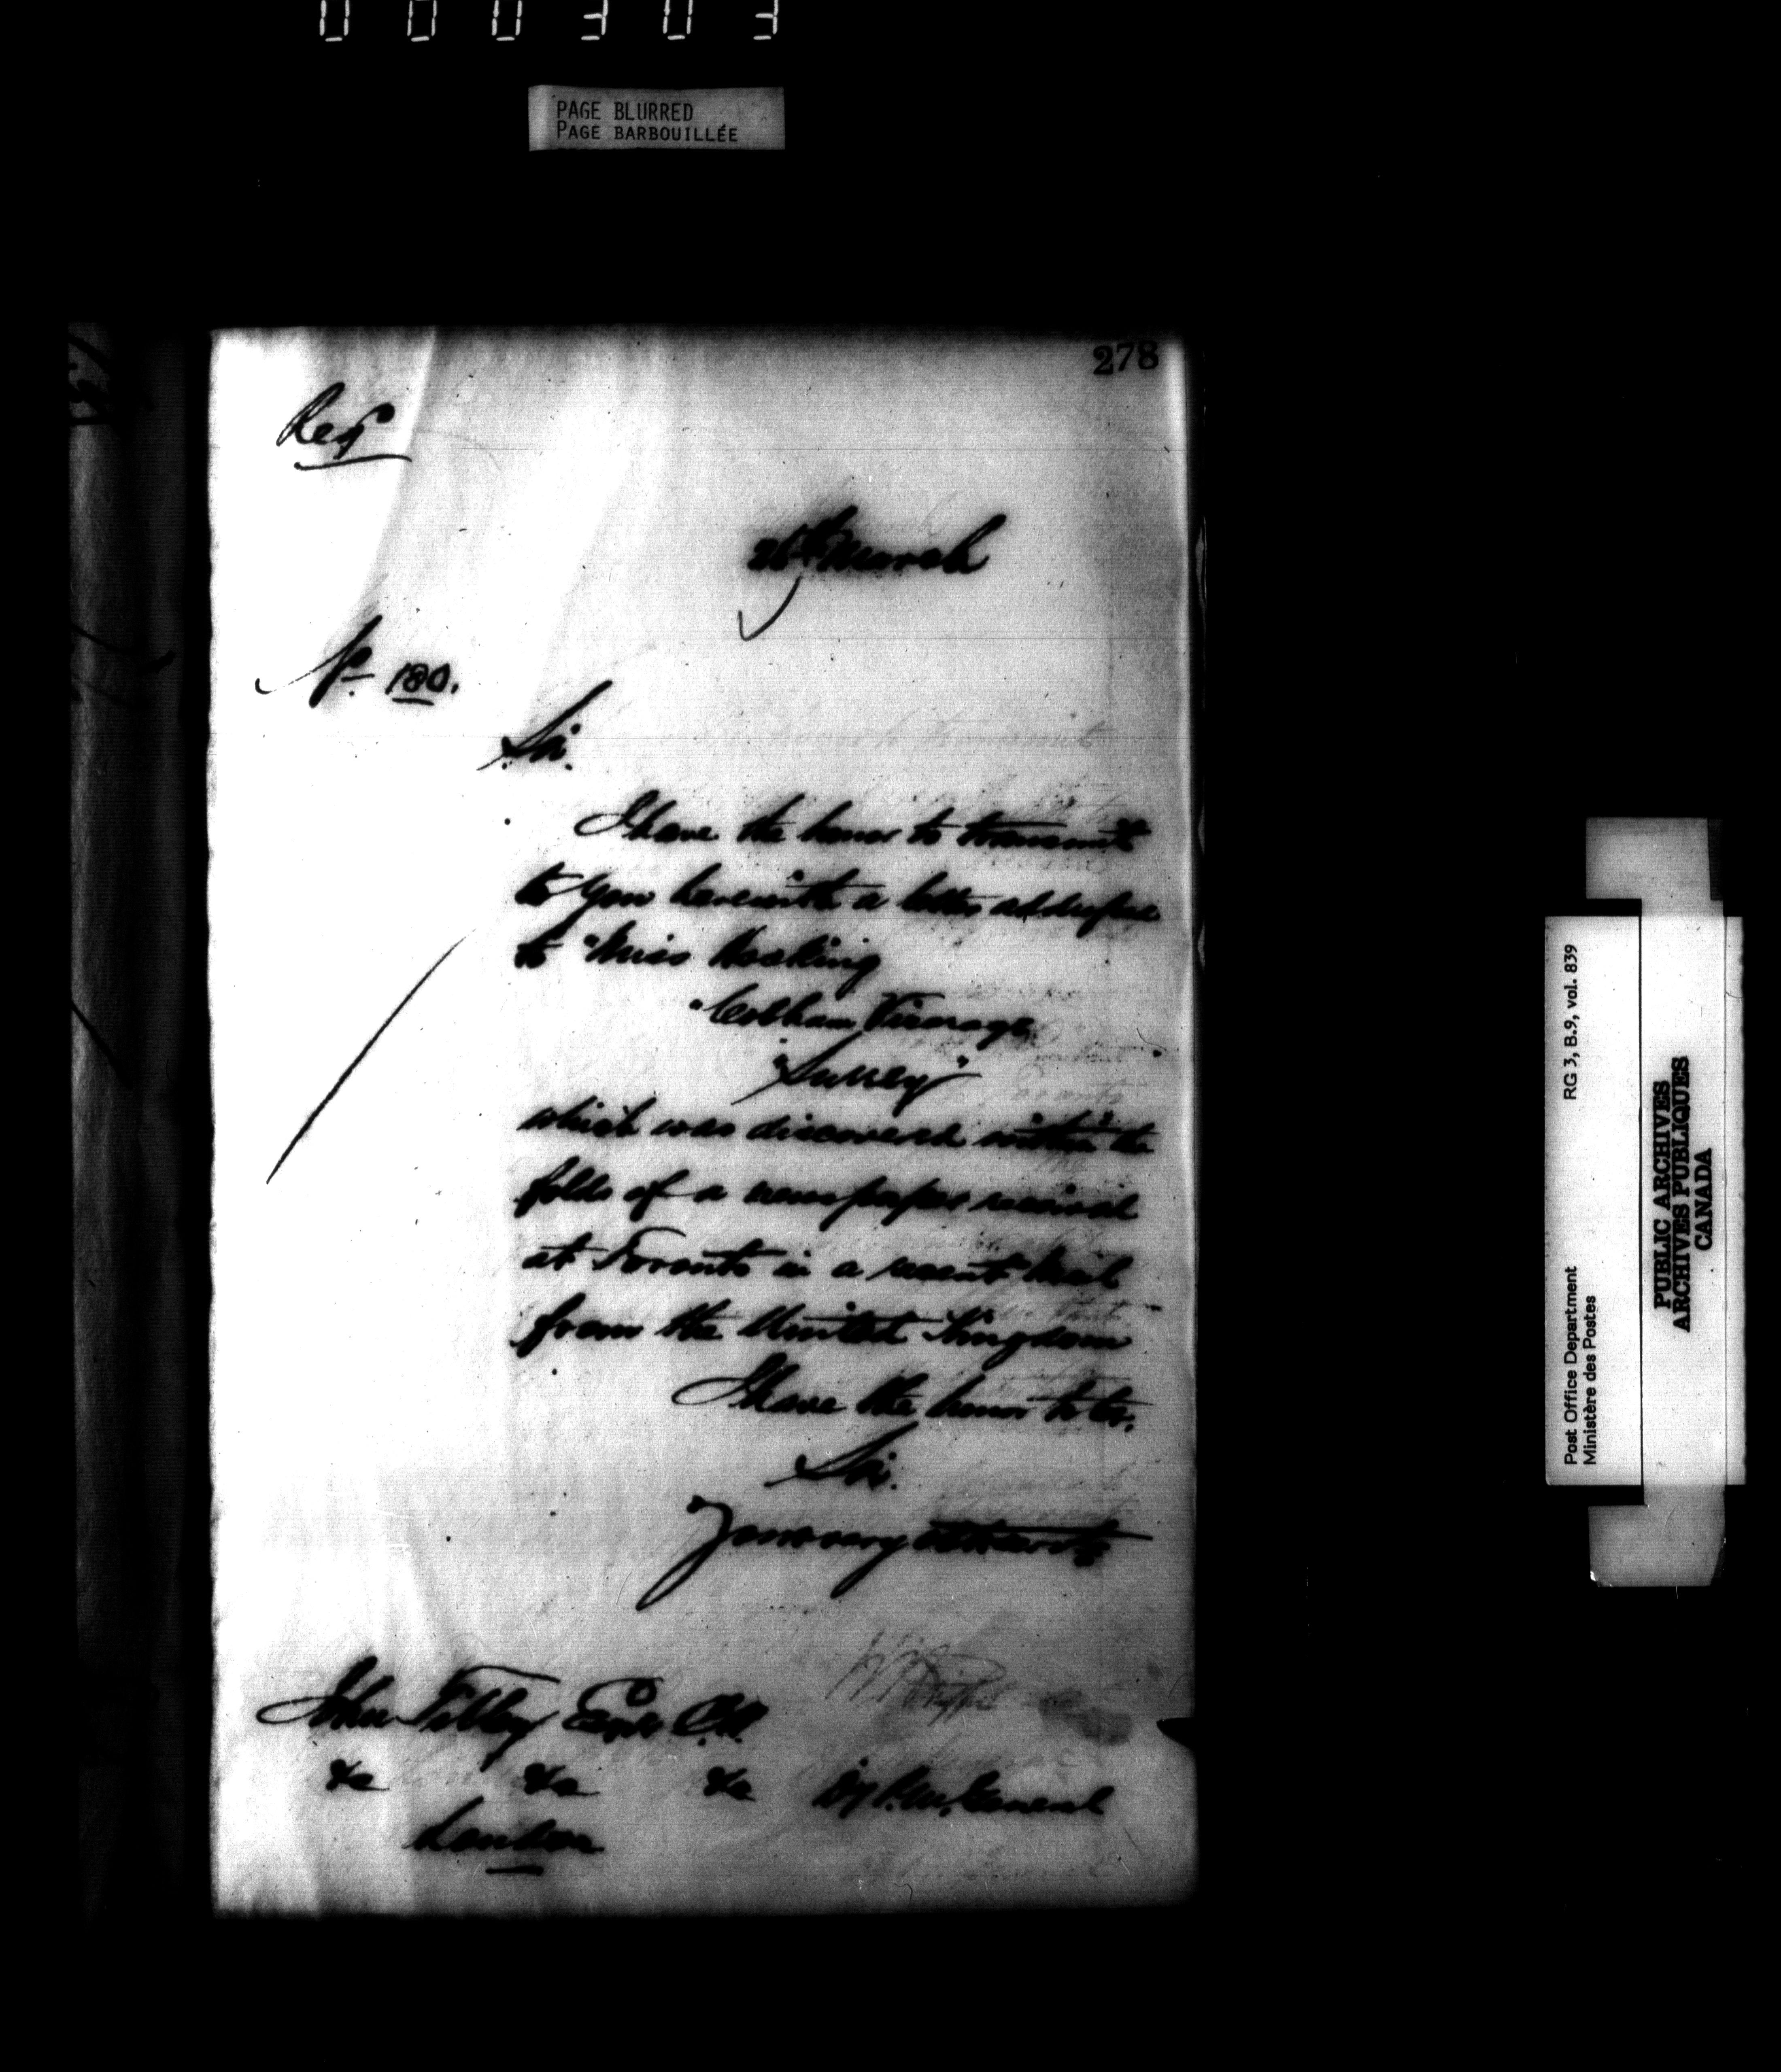 000303
PAGE BLURRED
PAGE BARBOUILLÉE
278
Regd
26th March
No 180.
Sir.
I have the honor to transmit
to you herewith a letter addressed
to "Miss Hosking
"Cobham Vicarage
"Surrey"
which was discovered within the
folds of a newspaper received
at Toronto in a recent Mail
from the United Kingdom
I have the honor to be,
Sir.
Your very obt Servt
John Tilley Esqr C.B.
&c &c &c
London
Dy P.M. General
Post Office Department
Ministère des Postes
RG 3, B.9, vol. 839
PUBLIC ARCHIVES
ARCHIVES PUBLIQUES
CANADA